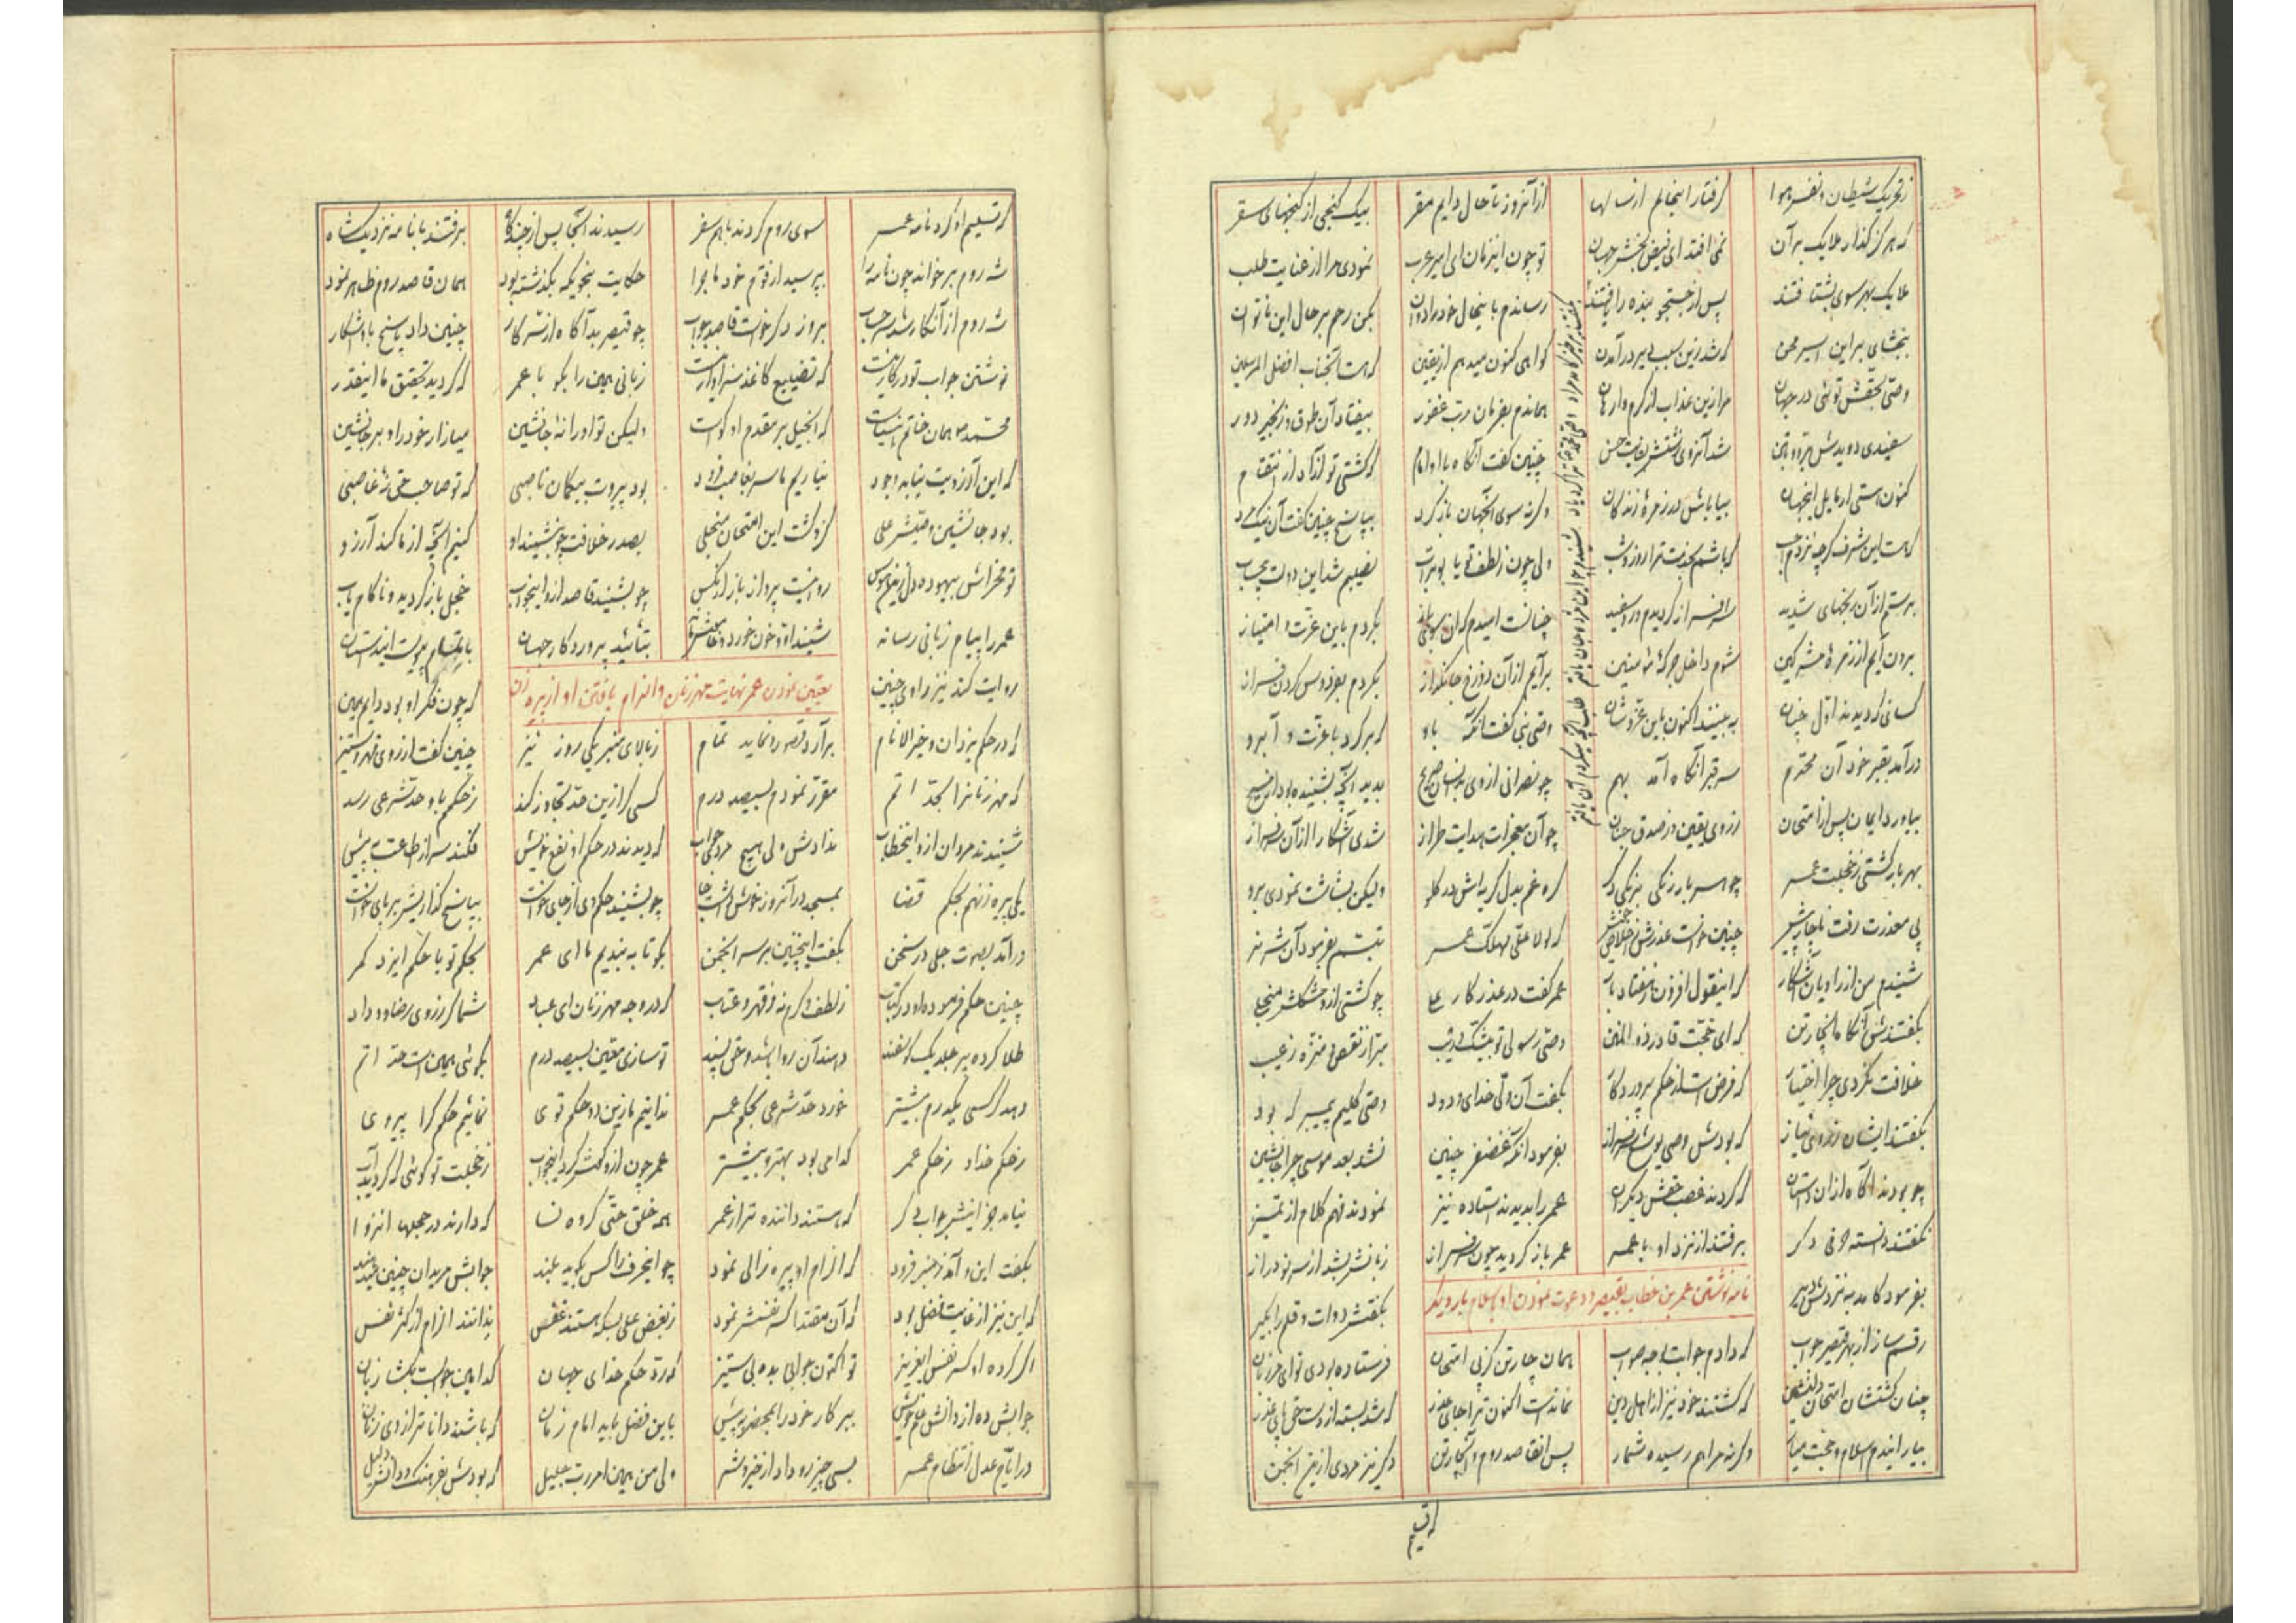 زتحریک شیطان و نفس و هوا گرفتار اینحالم از سالها از آنروز تا حال دایم مقر بیک کنجی از کنجهای سقر
که هرگز گذار ملایک بر آن نمی افتد ای فیض بخش جهان تو چون اینزمان ای امیر عرب نمودی مرا از عنایت طلب
ملایک بهر سوی بشتافتند پس از جستجو بنده را یافتند رساندم باینحال خود را دوان بکن رحم بر حال این ناتوان
ببخشای بر این اسیر محن که شد زین سبب دیر در آمدن گواهی کنون میدهم از یقین که هست آنجناب افضل المرسلین
وصی بحقش توئی در جهان مرا زین عذاب از کرم وارهان هماندم بفرمان رب غفور بیفتاد آن طوق و زنجیر دور
سفیدی دویدش شد آنروی چنین گفت آنگاه با او امام که گشتی تو آزاد از انتقام
کنون هستی ار مایل اینجهان بیا باش در زمرهٔ زندگان وگرنه سوی آنجهان بازگرد بپاسخ چنین گفت آن نیک مرد
که هست این شرف گرچه نزدم عجب که باشم بخدمت ترا روز و شب ولی چون ز لطف تو یا بوتراب نصیبم شد این دولت بیحساب
برستم از آن رنجهای شدید سرافراز گردیدم و روسفید چنانست امیدم بگردم باین عزت و امتیاز
برون آیم از زمرهٔ مشرکین شوم داخل جرگهٔ مؤمنین برآیم از آن دوزخ جانگداز بگردم بفردوس گردن فراز
کسانی که دیدند اول چنان ببینند اکنون باین عز و شان وصی نبی گفت آنگه باو که برگرد با عزت و آبرو
درآمد بقبر خود آن محترم سر قبر آنگاه آمد بهم چو نصرانی از وی بدید آنچه بشنیده بود از مسیح
بیاورد ایمان پس از امتحان ز روی یقین و ز صدق جنان چو آن معجزات هدایت طراز شدی آشکارا از آن سرفراز
بهر بار گشتی ز خجلت عمر چو هر بار رنگی برنگی دگر گره غم بدل گریه اش در گلو ولیکن بشاشت نمودی برو
پی معذرت رفت ناچار پیش چنین خواست عذرش که لولا علی مهلک عمر تبسم بفرمود آن شیر نر
شنیدم من از راویان آشکار که اینقول افزون ز هفتاد بار عمر گفت در عذر کار علی چو گشتی ازو مشکلش منجلی
بگفتندش آنگاه آن چار تن که ای حجت قادر ذو المنن وصی رسولی تو بیشک و ریب مبرا ز نقص و منزه ز عیب
خلافت نکردی چرا اختیار که فرض است از حکم پروردگار بگفت آن ولی خدای ودود وصی کلیم پیمبر که بود
بگفتند ایشان ز روی نیاز که بودش وصی یوشع سرفراز بفرمود آنگه غضنفر چنین نشد بعد موسی چرا جانشین
چو بودند آگاه از آن داستان که کردند غصب حقش دیگران عمر را بدیدند استاده نیز نمودند فهم کلام از تمیز
نگفتند دانسته حرفی دگر برفتند از نزد او با عمر عمر باز گردید چون سرفراز زبانش بشد از سر نو دراز
نامه نوشتن عمر بن خطاب بقیصر و دعوت نمودن او باسلام بار دیگر
بفرمود کامد به نزدش دبیر بگفتش دوات و قلم را بگیر
رقم ساز از بهر قیصر جواب که دادم جوابت بوجه صواب همان چار تن کز پی امتحان فرستاده بودی تو ای مرزبان
چنان گشتشان امتحان دلنشین که گشتند خود نیز از اهل دین نماندست اکنون ترا جای عذر که شد بسته از دست حق پای عذر
بیار اینزم اسلام و حجت میار وگرنه مرا هم رسیده شمار پس آنقاصد روم و آنچارتن دگر نیز مردی از نیز انجمن
که تسلیم
که تسلیم او کرد نامه عمر سوی روم کردند باهم سفر رسیدند آنجا پس از چند گاه برفتند با نامه نزدیک شاه
شه روم برخواند چون نامه را بپرسید از قوم خود ماجرا حکایت بنحویکه بگذشته بود همان قاصد روم ظاهر نمود
شه روم از آنکار شد بروز دگر خواست قاصد جواب چو قیصر بد آگاه از سر کار چنین داد پاسخ باو آشکار
نوشتن جواب تو درکار نیست که تضییع کاغذ سزاوار نیست زبانی همین را بگو با عمر که گردید تحقیق ما اینقدر
محمد همان خاتم انبیاست که انجیل بر مقدم او گواست ولیکن تو او را نهٔ جانشین میازار خود را و برجا نشین
که این آرزویت نیابد وجود نیاریم ما سر بغاصب فرود بود پیروت بیگمان ناصبی که تو صاحب حق نهٔ غاصبی
بود جانشین وصیش علی کزو گشت این امتحان منجلی بصدر خلافت چو بنشیند او کنیم آنچه از ما کند آرزو
تو مخراش بیهوده دل زین هوس روا نیست پرواز باز از مگس چو بشنید قاصد ازو اینجواب خجل باز گردید و ناکام یاب
عمر را پیام زبانی رساند شنید او و خون خورد و بتائید پروردگار جهان
تعیین نمودن عمر نهایت مهر زنان و الزام یافتن او از پیره زن
روایت کند نیز راوی چنین که چون فکر او بود دایم همین
که در حکم یزدان و خیر الانام برآرد قصور و نماید تمام ز بالای منبر یکی روز نیز چنین گفت از روی قهر و ستیز
که مهر زنان را بحد اتم مقرر نمودم بسیصد درم کسی گر ازین حد تجاوز کند ز حکم باو حد شرعی رسد
شنیدند مردان ازو اینخطاب ندادش ولی هیچ مردی جواب که دیدند در حکم او نفع خویش فکندند سر از طاعت به پیش
یکی پیره زن هم بحکم قضا بمسجد در آنروز چو بشنید حکم وی از جای خواست بپاسخ گذاریش بر پای خواست
درآمد بصوت جلی در سخن بگفت اینچنین بر سر انجمن بگو تا به بندیم ما ای عمر بحکم تو یا حکم ایزد کمر
چنین حکم فرموده او در کتاب ز لطف و کرم نه ز قهر و عتاب که در وجه مهر زنان ای عباد شما گر ز روی رضا و وداد
طلا کرده پر جلد یک گوسفند دهند آن روا باشد و حق پسند تو سازی معین بسیصد درم بگوئی همین است حد اتم
دهد گر کسی یکدرم بیشتر خورد حد شرعی بحکم عمر ندانیم ما زین دو حکم قوی نمائیم حکم کرا پیروی
ز حکم خدا و ز حکم عمر کدامی بود بهتر و بیشتر عمر چون ازو گوش کرد اینجواب ز خجلت تو گوئی که گردید آب
نیامد جز اینش جوابی دگر که هستند داننده تر از عمر همه خلق حتی گروه نسا که دارند در حجلها انزوا
بگفت این و آمد ز منبر فرود که الزام او پیره زالی نمود چو اینحرف را کس بگوید بلند جوابش مریدان چنین میدهند
که این نیز از غایت فضل بود که آن مقتدا کسر نفسش نمود ز بغض علی بسکه هستند غفس ندانند الزام از کسر نفس
اگر کرده او کسر نفس ایعزیز تو اکنون جوابی بده بی ستیز که رد حکم خدای جهان کدامین جوابست بگشا زبان
جوابش ده از دانش و علم خویش ببر کار خود را بمحضر به پیش باین فضل باید امام زمان که باشند داناتر از وی زنان
در ایام عدل انتظام عمر بسی چیز رو داد از خیر و شر ولی من همین امر رب جلیل که بودش بفرهنگ و دانش دلیل